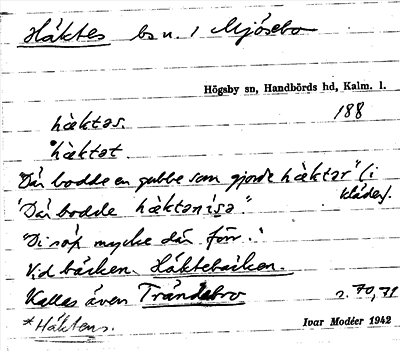 Häktes bs u. 1 Mjösebo
Högsby sn, Handbörds hd, Kalm. l.
188
hæktəs.
*hæktət.
"Där bodde en gubbe som gjorde hæktər" (i kläder).
"Där bodde hæktanisə."
"Di söp mycke där förr."
Vid bäcken Häktebäcken.
Kallas även Trändebro s. 70, 71
*Häktens.
Ivar Modéer 1942